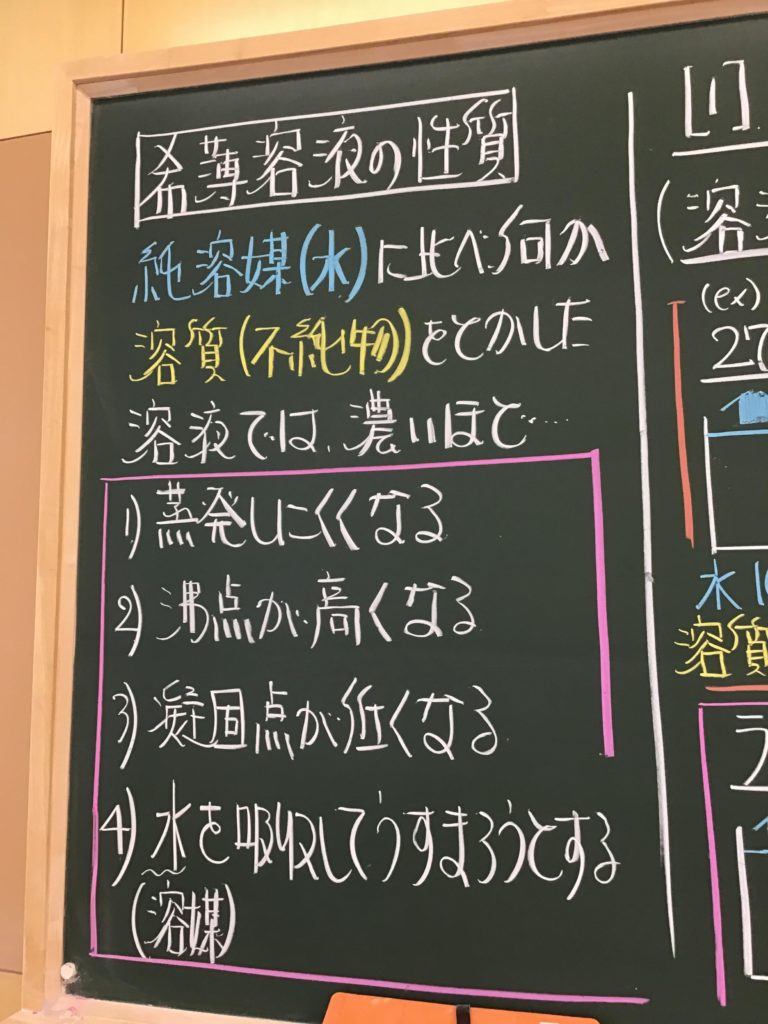 希薄溶液の性質
純溶媒(水)に比べ何か
溶質(不純物)をとかした
溶液では、濃いほど…
1) 蒸発しにくくなる
2) 沸点が高くなる
3) 凝固点が低くなる
4) 水を吸収してうすまろうとする
(溶媒)
[1]
(溶
(ex)
27
水 1
溶質
ラ